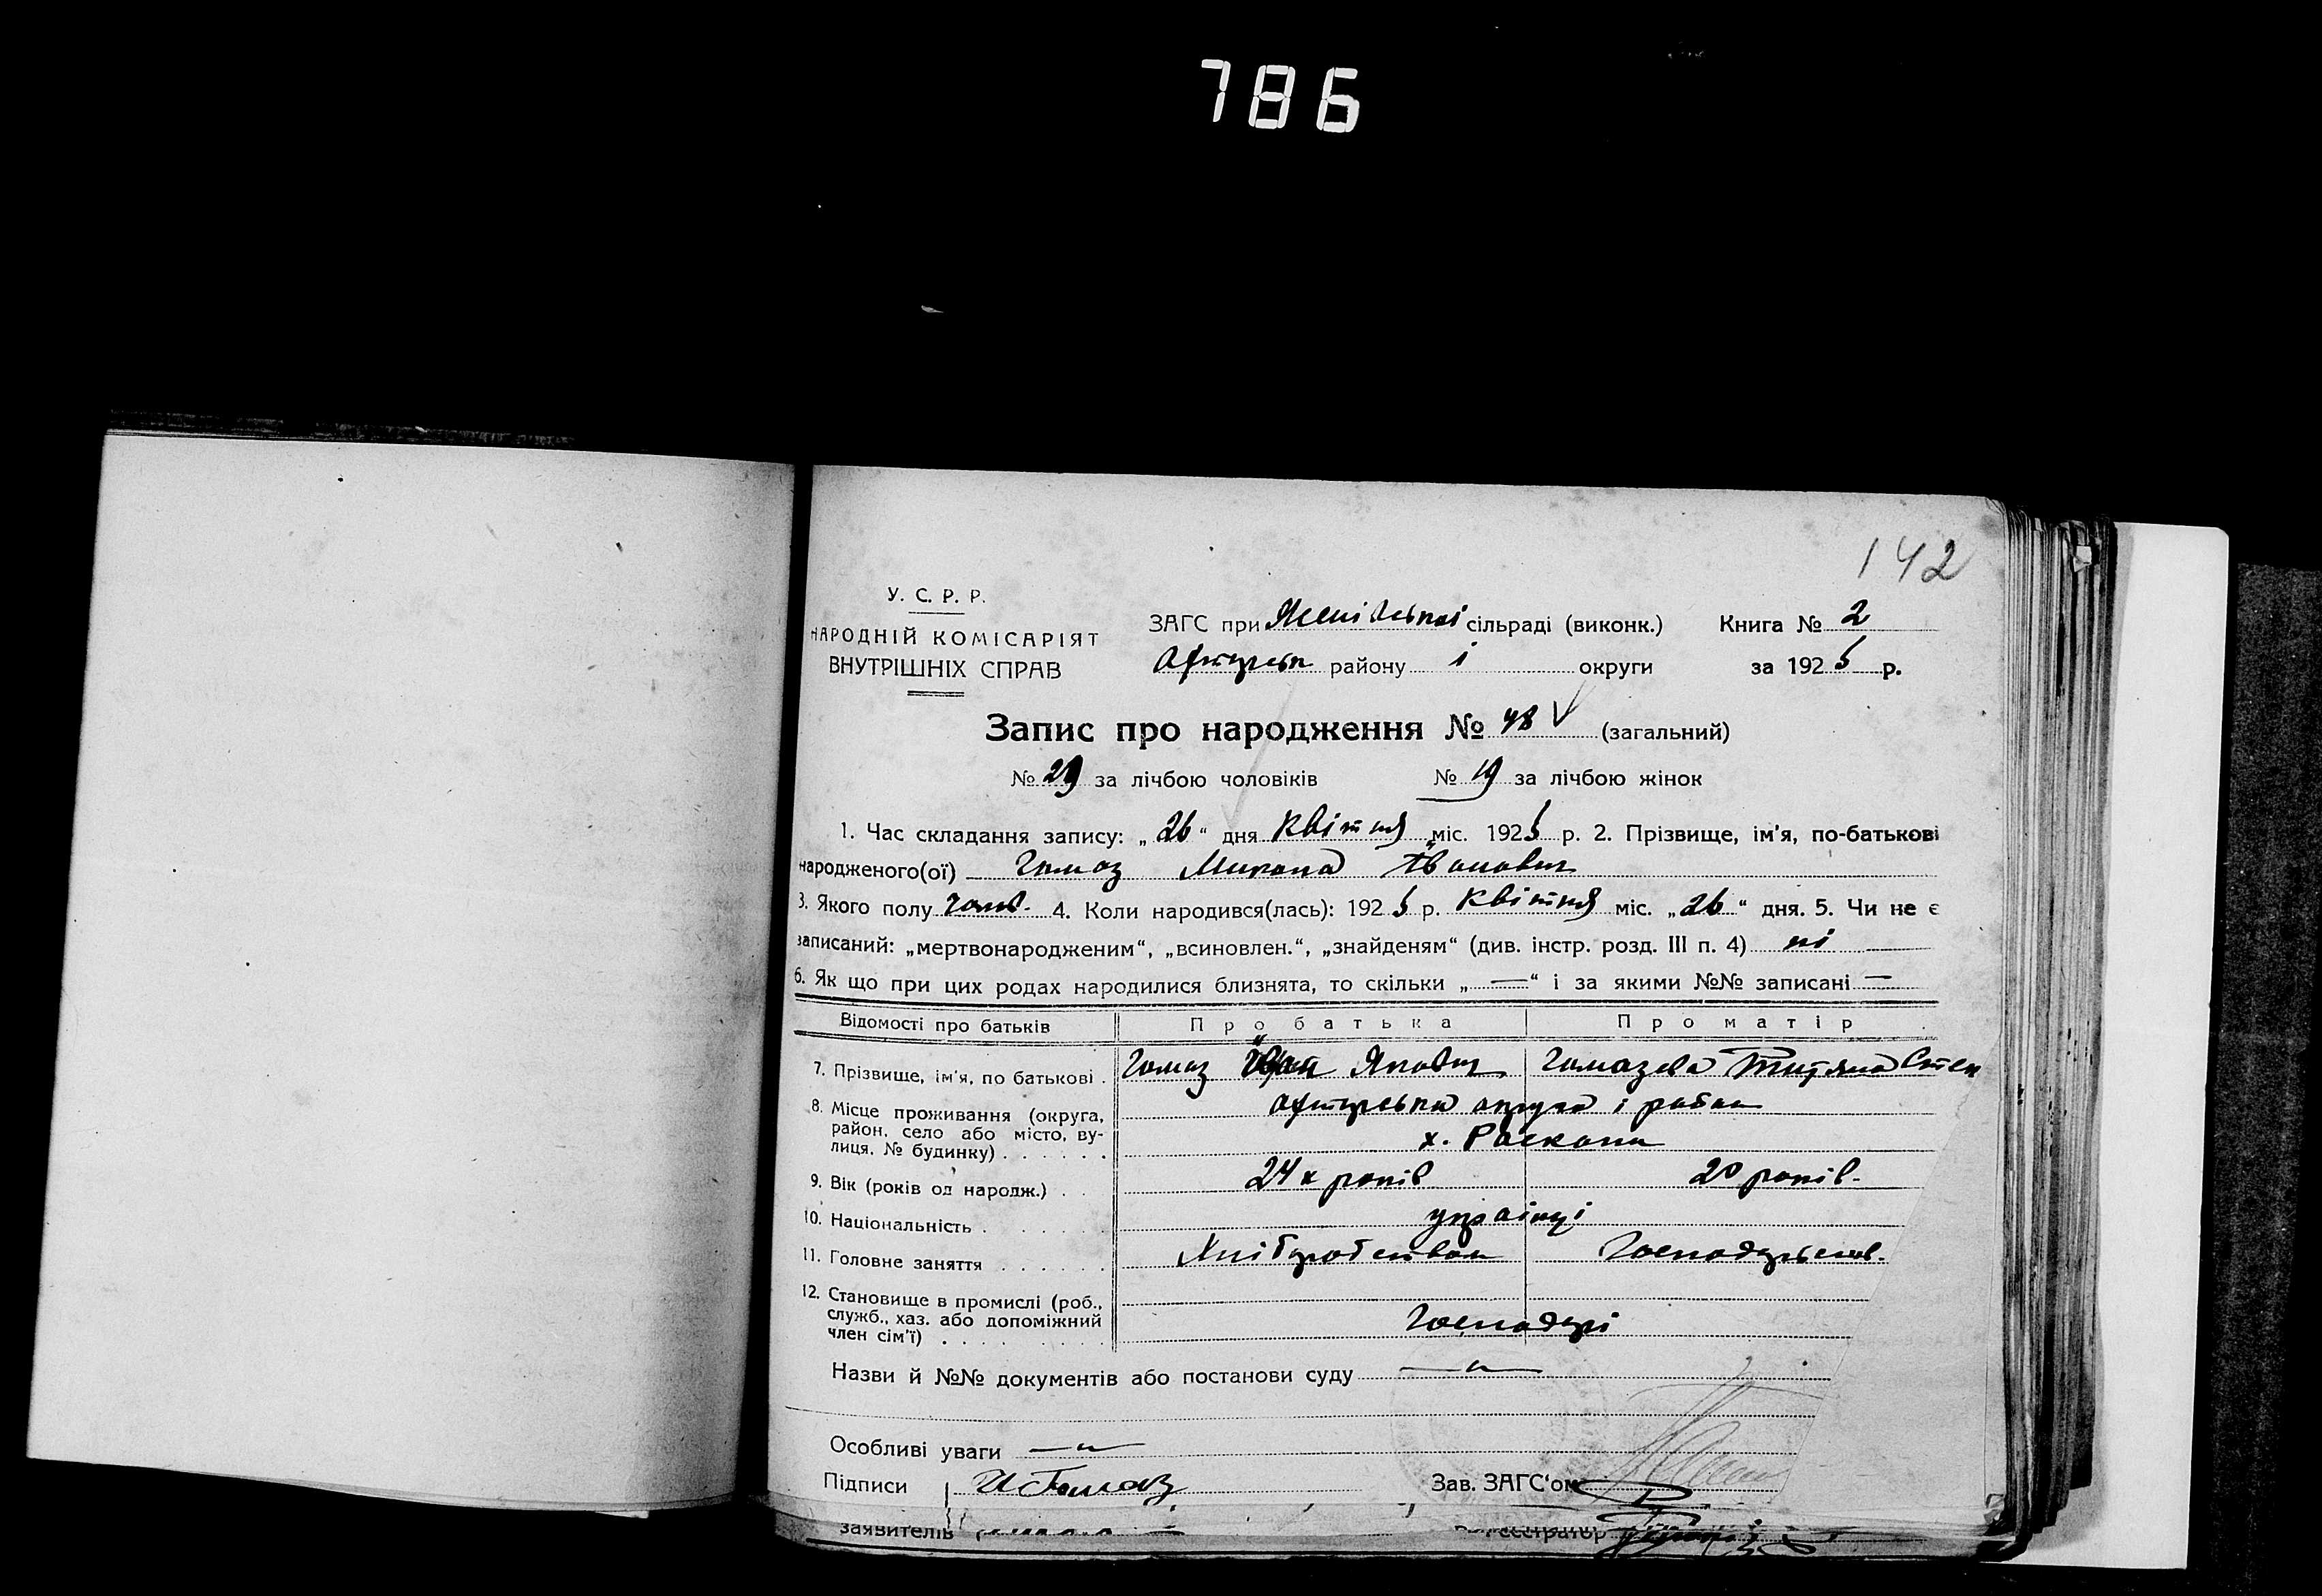 786
142
У. С. Р. Р.
НАРОДНІЙ КОМІСАРІЯТ
ВНУТРІШНІХ СПРАВ
ЗАГС при сільраді (виконк.) Книга № 2
району і округи за 1925 р.
Запис про народження № 48 (загальний)
№ 29 за лічбою чоловіків № 19 за лічбою жінок
1. Час складання запису: „26“ дня Квітня міс. 1925 р. 2. Прізвище, ім'я, по-батькові
народженого(ої) Гомоз Микола Іванович
3. Якого полу чолов. 4. Коли народився(лась): 1925 р. Квітня міс. „26“ дня. 5. Чи не є
записаний: „мертвонародженим“, „всиновлен.“, „знайденям“ (див. інстр. розд. III п. 4) ні
6. Як що при цих родах народилися близнята, то скільки „—“ і за якими №№ записані —
Відомості про батьків Про батька Про матір
7. Прізвище, ім'я, по батькові . Гомоз Іван Якович
8. Місце проживання (округа, район, село або місто, вулиця, № будинку) . . . . . . округа і район
х. Раскопи
9. Вік (років од народж.) . . 24х років 20 років.
10. Національність . . . . . . українці
11. Головне заняття . . . . . . Хліборобством Господарств.
12. Становище в промислі (роб., служб., хаз. або допоміжний член сім'ї) . . . . . . . . Господарі
Назви й №№ документів або постанови суду —"—
Особливі уваги —"—
Підписи Зав. ЗАГС'ом
заявителів Реєстратор